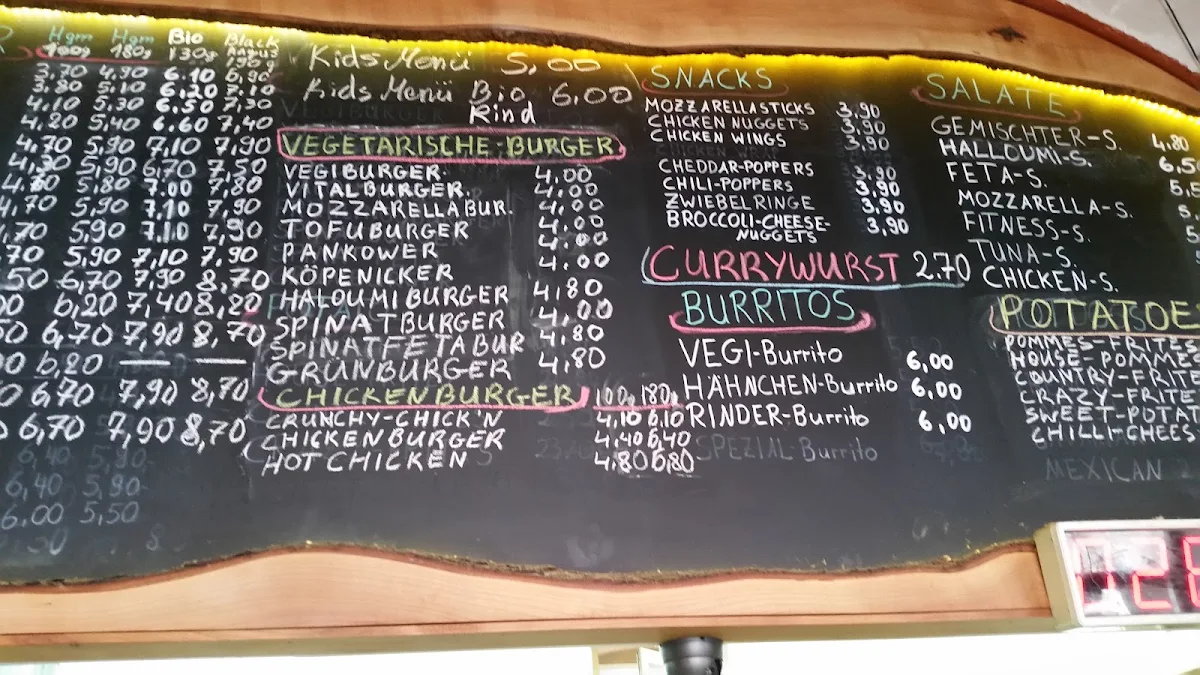 R Hgm Hgm Bio Black
100g 180g 130g Angus
3.70 4,90 6.10 6,90
3.80 5.10 6.20 7.10
4.10 5.30 6.50 7,30
4.20 5,40 6.60 7,40
4.70 5,90 7,10 7,90
5,90 6,70 7,50
5,80 7.00 7,80
4,70 5,90 7.10 7,90
.70 5,90 7.10 7,90
.70 5,90 7,10 7,90
50 6,70 7,90 8,70
00 6,20 7,40 8,20
50 6,70 7,90 8,70
00 6,20 — —
0 6,70 7,90 8,70
0 6,70 7,90 8,70
6,40 5,80
6,40 5,90
6.00 5,50
Kids Menü 5,00
Kids Menü Bio 6,00
Rind
VEGETARISCHE-BURGER
VEGIBURGER 4,00
VITALBURGER. 4,00
MOZZARELLABUR. 4,00
TOFUBURGER 4,00
PANKOWER 4.00
KÖPENICKER
HALOUMIBURGER 4,80
SPINATBURGER 4,00
SPINATFETABUR 4,80
GRÜNBURGER 4,80
CHICKENBURGER 100g 180g
CRUNCHY-CHICK'N 4,10 6.10
CHICKENBURGER 4.40 6,40
HOT CHICKEN 4.80 6,80
SNACKS
MOZZARELLASTICKS 3,90
CHICKEN NUGGETS 3,90
CHICKEN WINGS 3,90
CHEDDAR-POPPERS 3.90
CHILI-POPPERS 3,90
ZWIEBELRINGE 3,90
BROCCOLI-CHEESE- 3,90
NUGGETS
CURRYWURST 2.70
BURRITOS
VEGI-Burrito 6,00
HÄHNCHEN-Burrito 6,00
RINDER-Burrito 6,00
SPEZIAL-Burrito
SALATE
GEMISCHTER-S. 4.80
HALLOUMI-S. 6.5
FETA-S. 5,
MOZZARELLA-S. 5
FITNESS-S. 5
TUNA-S.
CHICKEN-S.
POTATOE
POMMES-FRITES
HOUSE-POMMES
COUNTRY-FRITE
CRAZY-FRITE
SWEET-POTAT
CHILLI-CHEES
MEXICAN